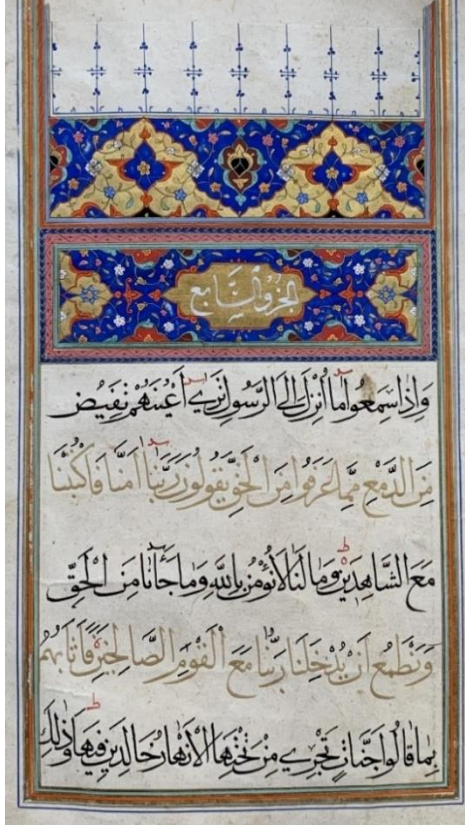 الجزو السابع
وَإِذَا سَمِعُوا مَا أُنْزِلَ إِلَى الرَّسُولِ تَرَى أَعْيُنَهُمْ تَفِيضُ
مِنَ الدَّمْعِ مِمَّا عَرَفُوا مِنَ الْحَقِّ يَقُولُونَ رَبَّنَا آمَنَّا فَاكْتُبْنَا
مَعَ الشَّاهِدِينَ ط وَمَا لَنَا لَا نُؤْمِنُ بِاللَّهِ وَمَا جَاءَنَا مِنَ الْحَقِّ
وَنَطْمَعُ أَنْ يُدْخِلَنَا رَبُّنَا مَعَ الْقَوْمِ الصَّالِحِينَ فَأَثَابَهُمُ
بِمَا قَالُوا جَنَّاتٍ تَجْرِي مِنْ تَحْتِهَا الْأَنْهَارُ خَالِدِينَ فِيهَا ط وَذَلِكَ